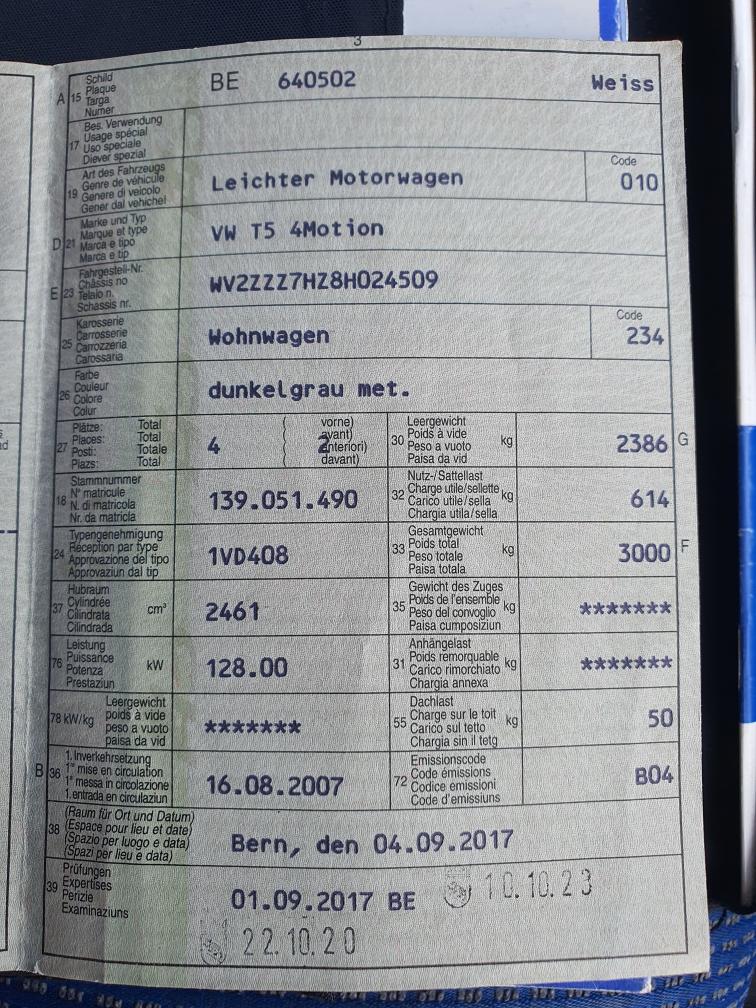 3
A 15 Schild
Plaque
Targa
Numer
BE 640502 Weiss
17 Bes. Verwendung
Usage spécial
Uso speciale
Diever spezial
19 Art des Fahrzeugs
Genre de véhicule
Genere di veicolo
Gener dal vehichel
Leichter Motorwagen
Code
010
D 21 Marke und Typ
Marque et type
Marca e tipo
Marca e tip
VW T5 4Motion
E 23 Fahrgestell-Nr.
Châssis no
Telaio n.
Schassis nr.
WV2ZZZ7HZ8H024509
25 Karosserie
Carrosserie
Carrozzeria
Carossaria
Wohnwagen
Code
234
26 Farbe
Couleur
Colore
Colur
dunkelgrau met.
27 Plätze: Total
Places: Total
Posti: Totale
Plazs: Total
4
( vorne)
avant)
anteriori)
( davant)
2
30 Leergewicht
Poids à vide
Peso a vuoto
Paisa da vid
kg
2386 G
18 Stammnummer
N° matricule
N. di matricola
Nr. da matricla
139.051.490
32 Nutz-/Sattellast
Charge utile/sellette
Carico utile/sella
Chargia utila/sella
kg
614
24 Typengenehmigung
Réception par type
Approvazione del tipo
Approvaziun dal tip
1VD408
33 Gesamtgewicht
Poids total
Peso totale
Paisa totala
kg
3000 F
37 Hubraum
Cylindrée
Cilindrata
Cilindrada
cm³
2461
35 Gewicht des Zuges
Poids de l'ensemble
Peso del convoglio
Paisa cumposiziun
kg
*******
76 Leistung
Puissance
Potenza
Prestaziun
kW
128.00
31 Anhängelast
Poids remorquable
Carico rimorchiato
Chargia annexa
kg
*******
78 kW/kg Leergewicht
poids à vide
peso a vuoto
paisa da vid
*******
55 Dachlast
Charge sur le toit
Carico sul tetto
Chargia sin il tetg
kg
50
B 36 1. Inverkehrsetzung
1re mise en circulation
1a messa in circolazione
1. entrada en circulaziun
16.08.2007
72 Emissionscode
Code émissions
Codice emissioni
Code d'emissiuns
B04
38 (Raum für Ort und Datum)
(Espace pour lieu et date)
(Spazio per luogo e data)
(Spazi per lieu e data)
Bern, den 04.09.2017
39 Prüfungen
Expertises
Perizie
Examinaziuns
01.09.2017 BE
10.10.23
22.10.20